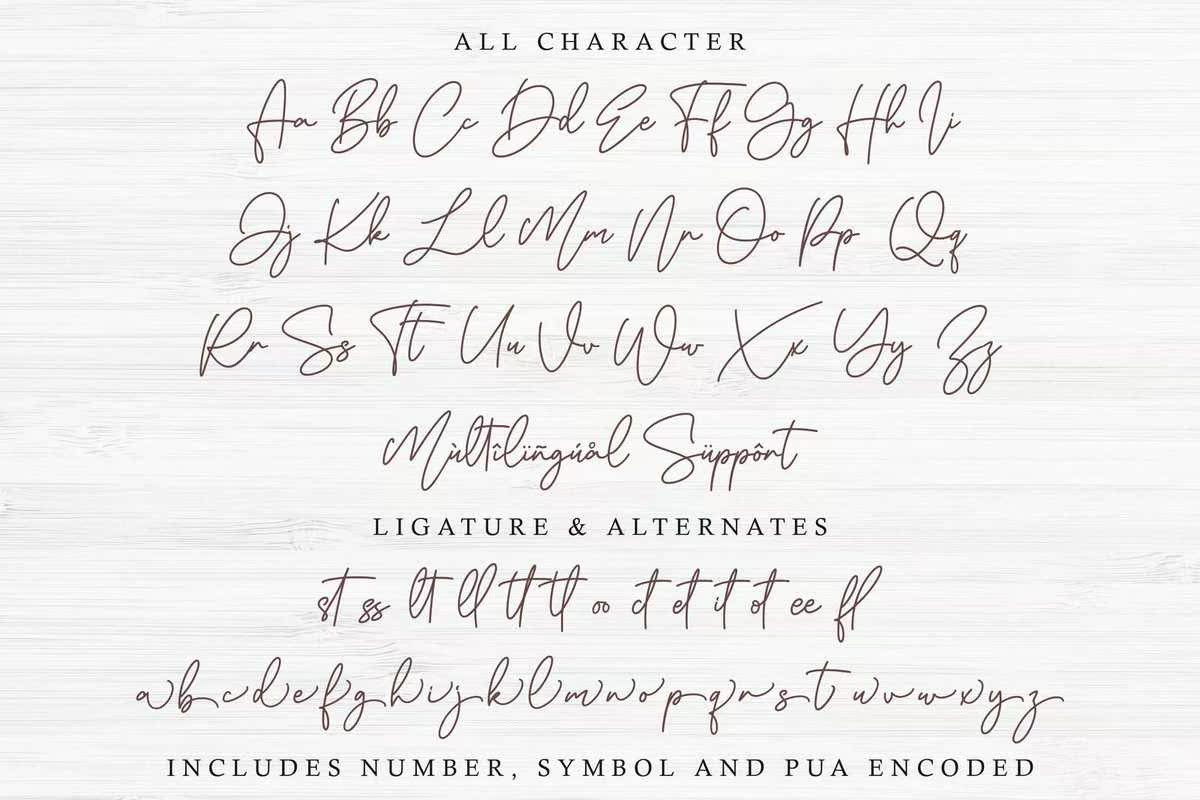 ALL CHARACTER
Aa Bb Cc Dd Ee Ff Gg Hh Ii
Jj Kk Ll Mm Nn Oo Pp Qq
Rr Ss Tt Uu Vv Ww Xx Yy Zz
Mùltîlïñgúål Süppônt
LIGATURE & ALTERNATES
st ss lt ll tt tl oo ct et it ot ee fl
a b c d e f g h i j k l m n o p q r s t u v w x y z
INCLUDES NUMBER, SYMBOL AND PUA ENCODED